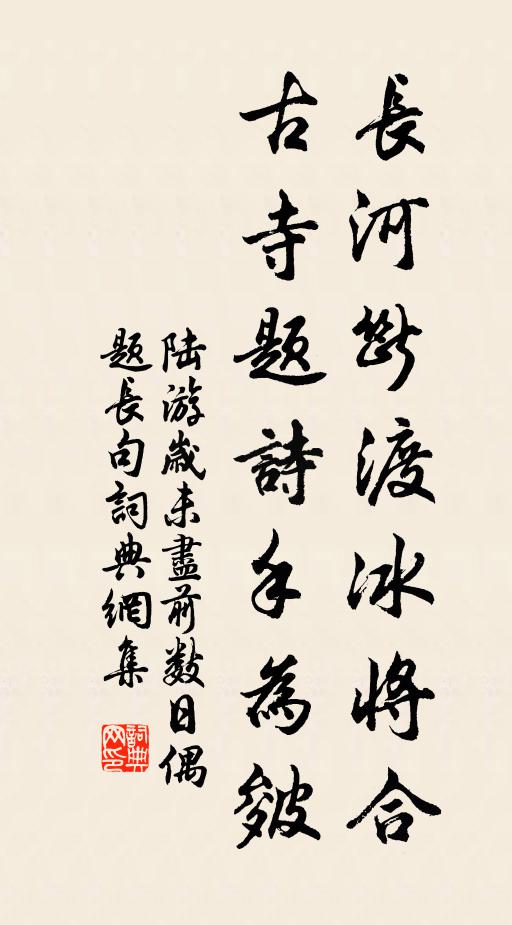 長河斷渡冰將合
古寺題詩手為皴
陸游歲未盡前數日偶
題長句詞典網集
詞典
网印